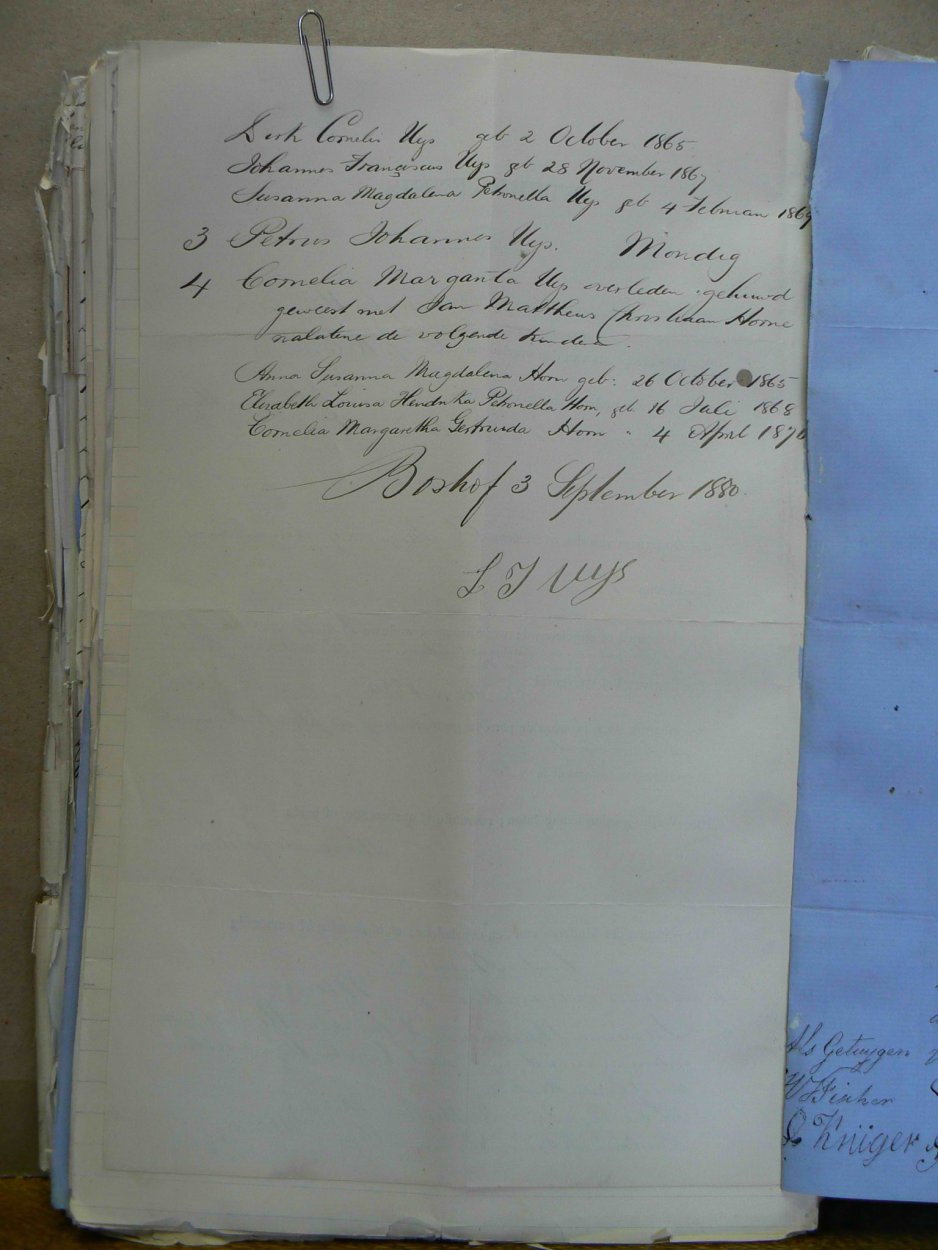 Dirk Cornelis Uys geb 2 October 1865
Johannes Franciscus Uys geb 28 November 1867
Susanna Magdalena Petronella Uys geb 4 Februari 1869
3 Petrus Johannes Uys. Mondig
4 Cornelia Margarita Uys overleden gehuwd
geweest met Jan Mattheus Christiaan Horne
nalatene de volgende kinderen.
Anna Susanna Magdalena Horn geb: 26 October 1865
Elizabeth Louisa Hendrika Petronella Horn, geb 16 Juli 1868
Cornelia Margaretha Gertruida Horn " 4 April 187
Boshof 3 September 1880.
L J Uys
Als Getuygen
Kruger